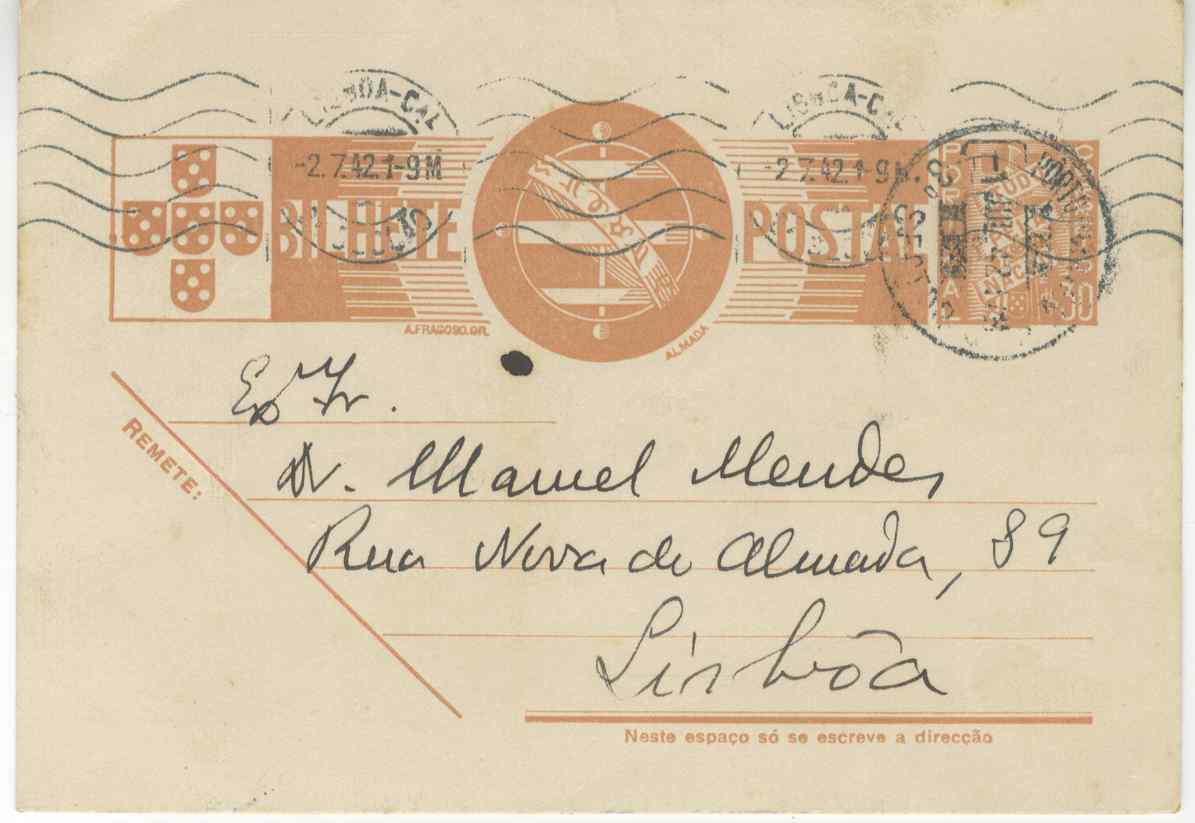 LISBOA-CAL
LISBOA-C
-2.7.42.1-9M
-2.7.42.1-9M.
BILHETE
POSTAL
A.FRAGOSO.GR.
ALMADA
REMETE:
Ex Sr.
Dr. Manuel Mendes
Rua Nova do Almada, 89
Lisbôa
Neste espaço só se escreve a direcção